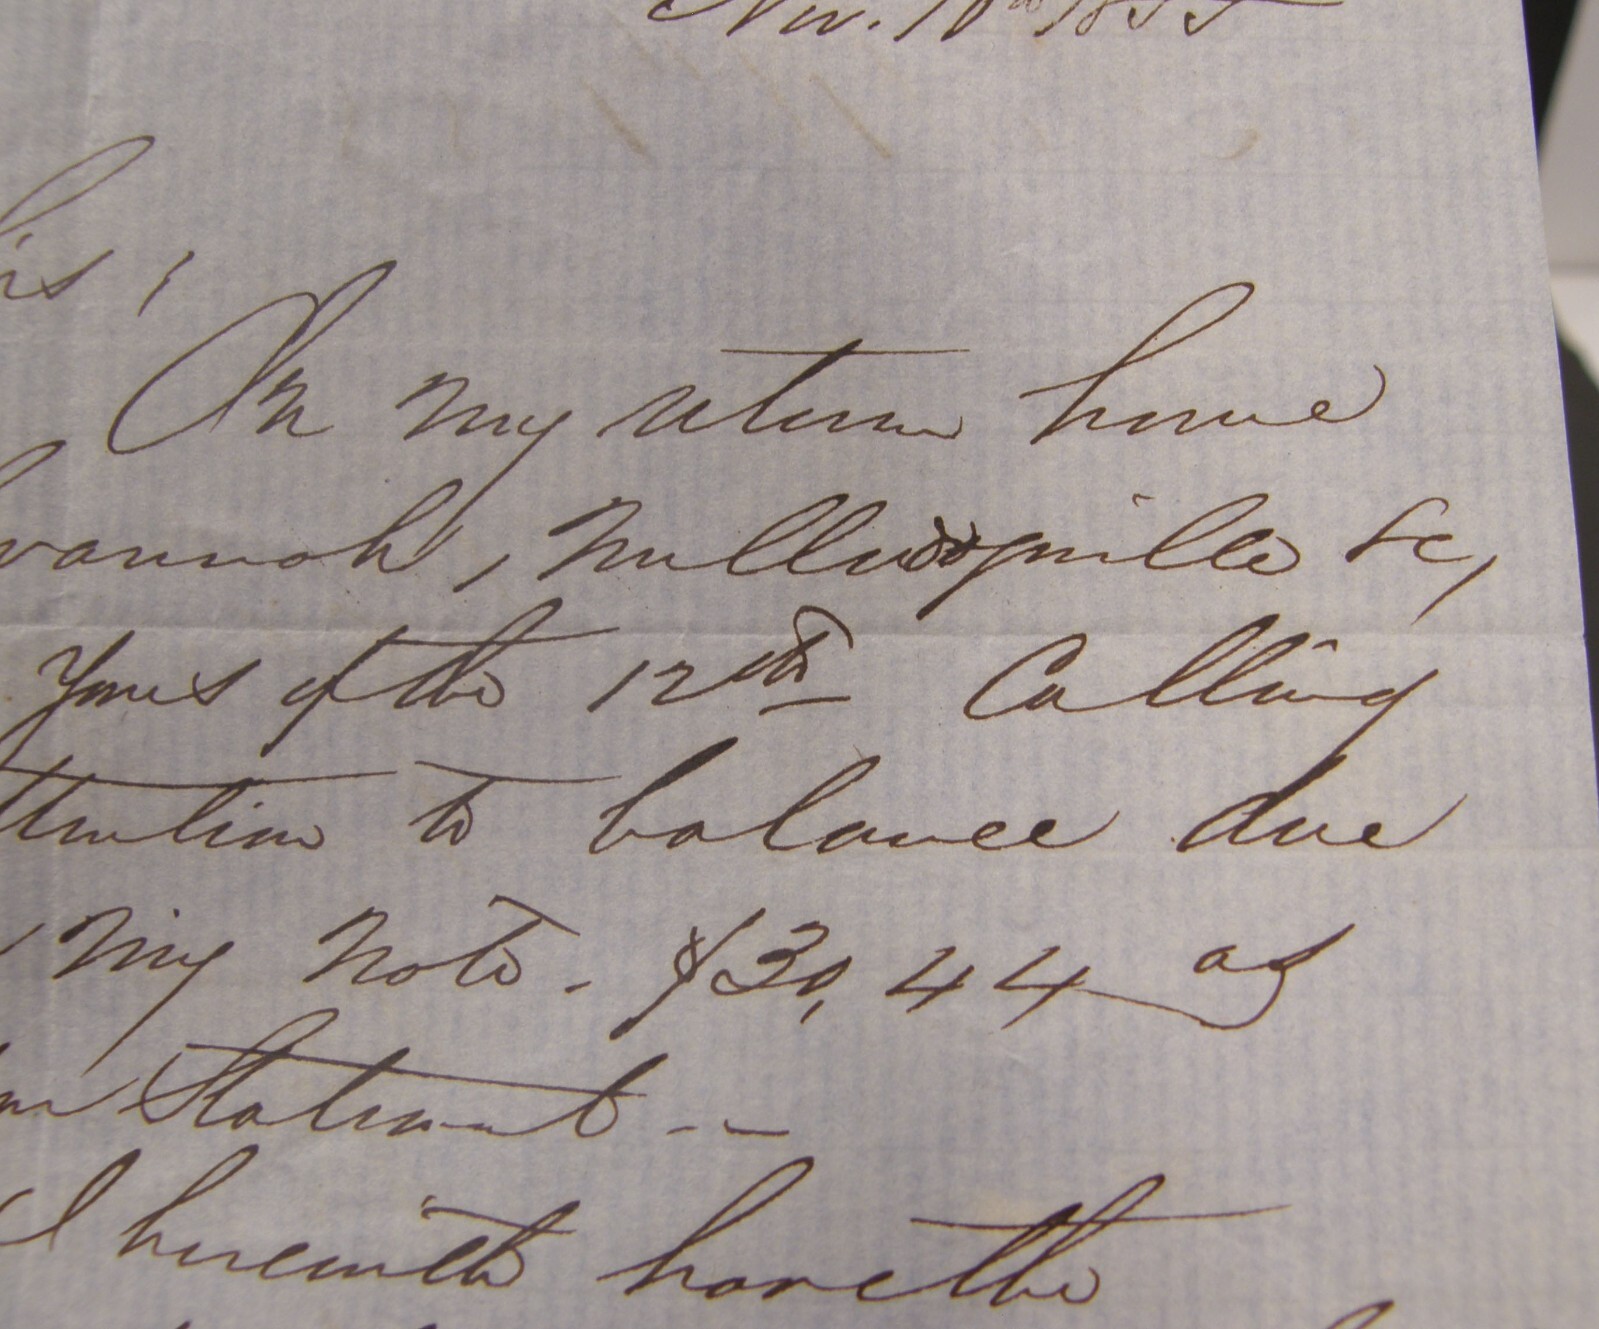 Nov. 18th 1855
On my return home
vannah, Milledgeville &c,
Yours of the 12th Calling
ttention to balance due
my note. $30,44 as
Statement --
I herewith have the